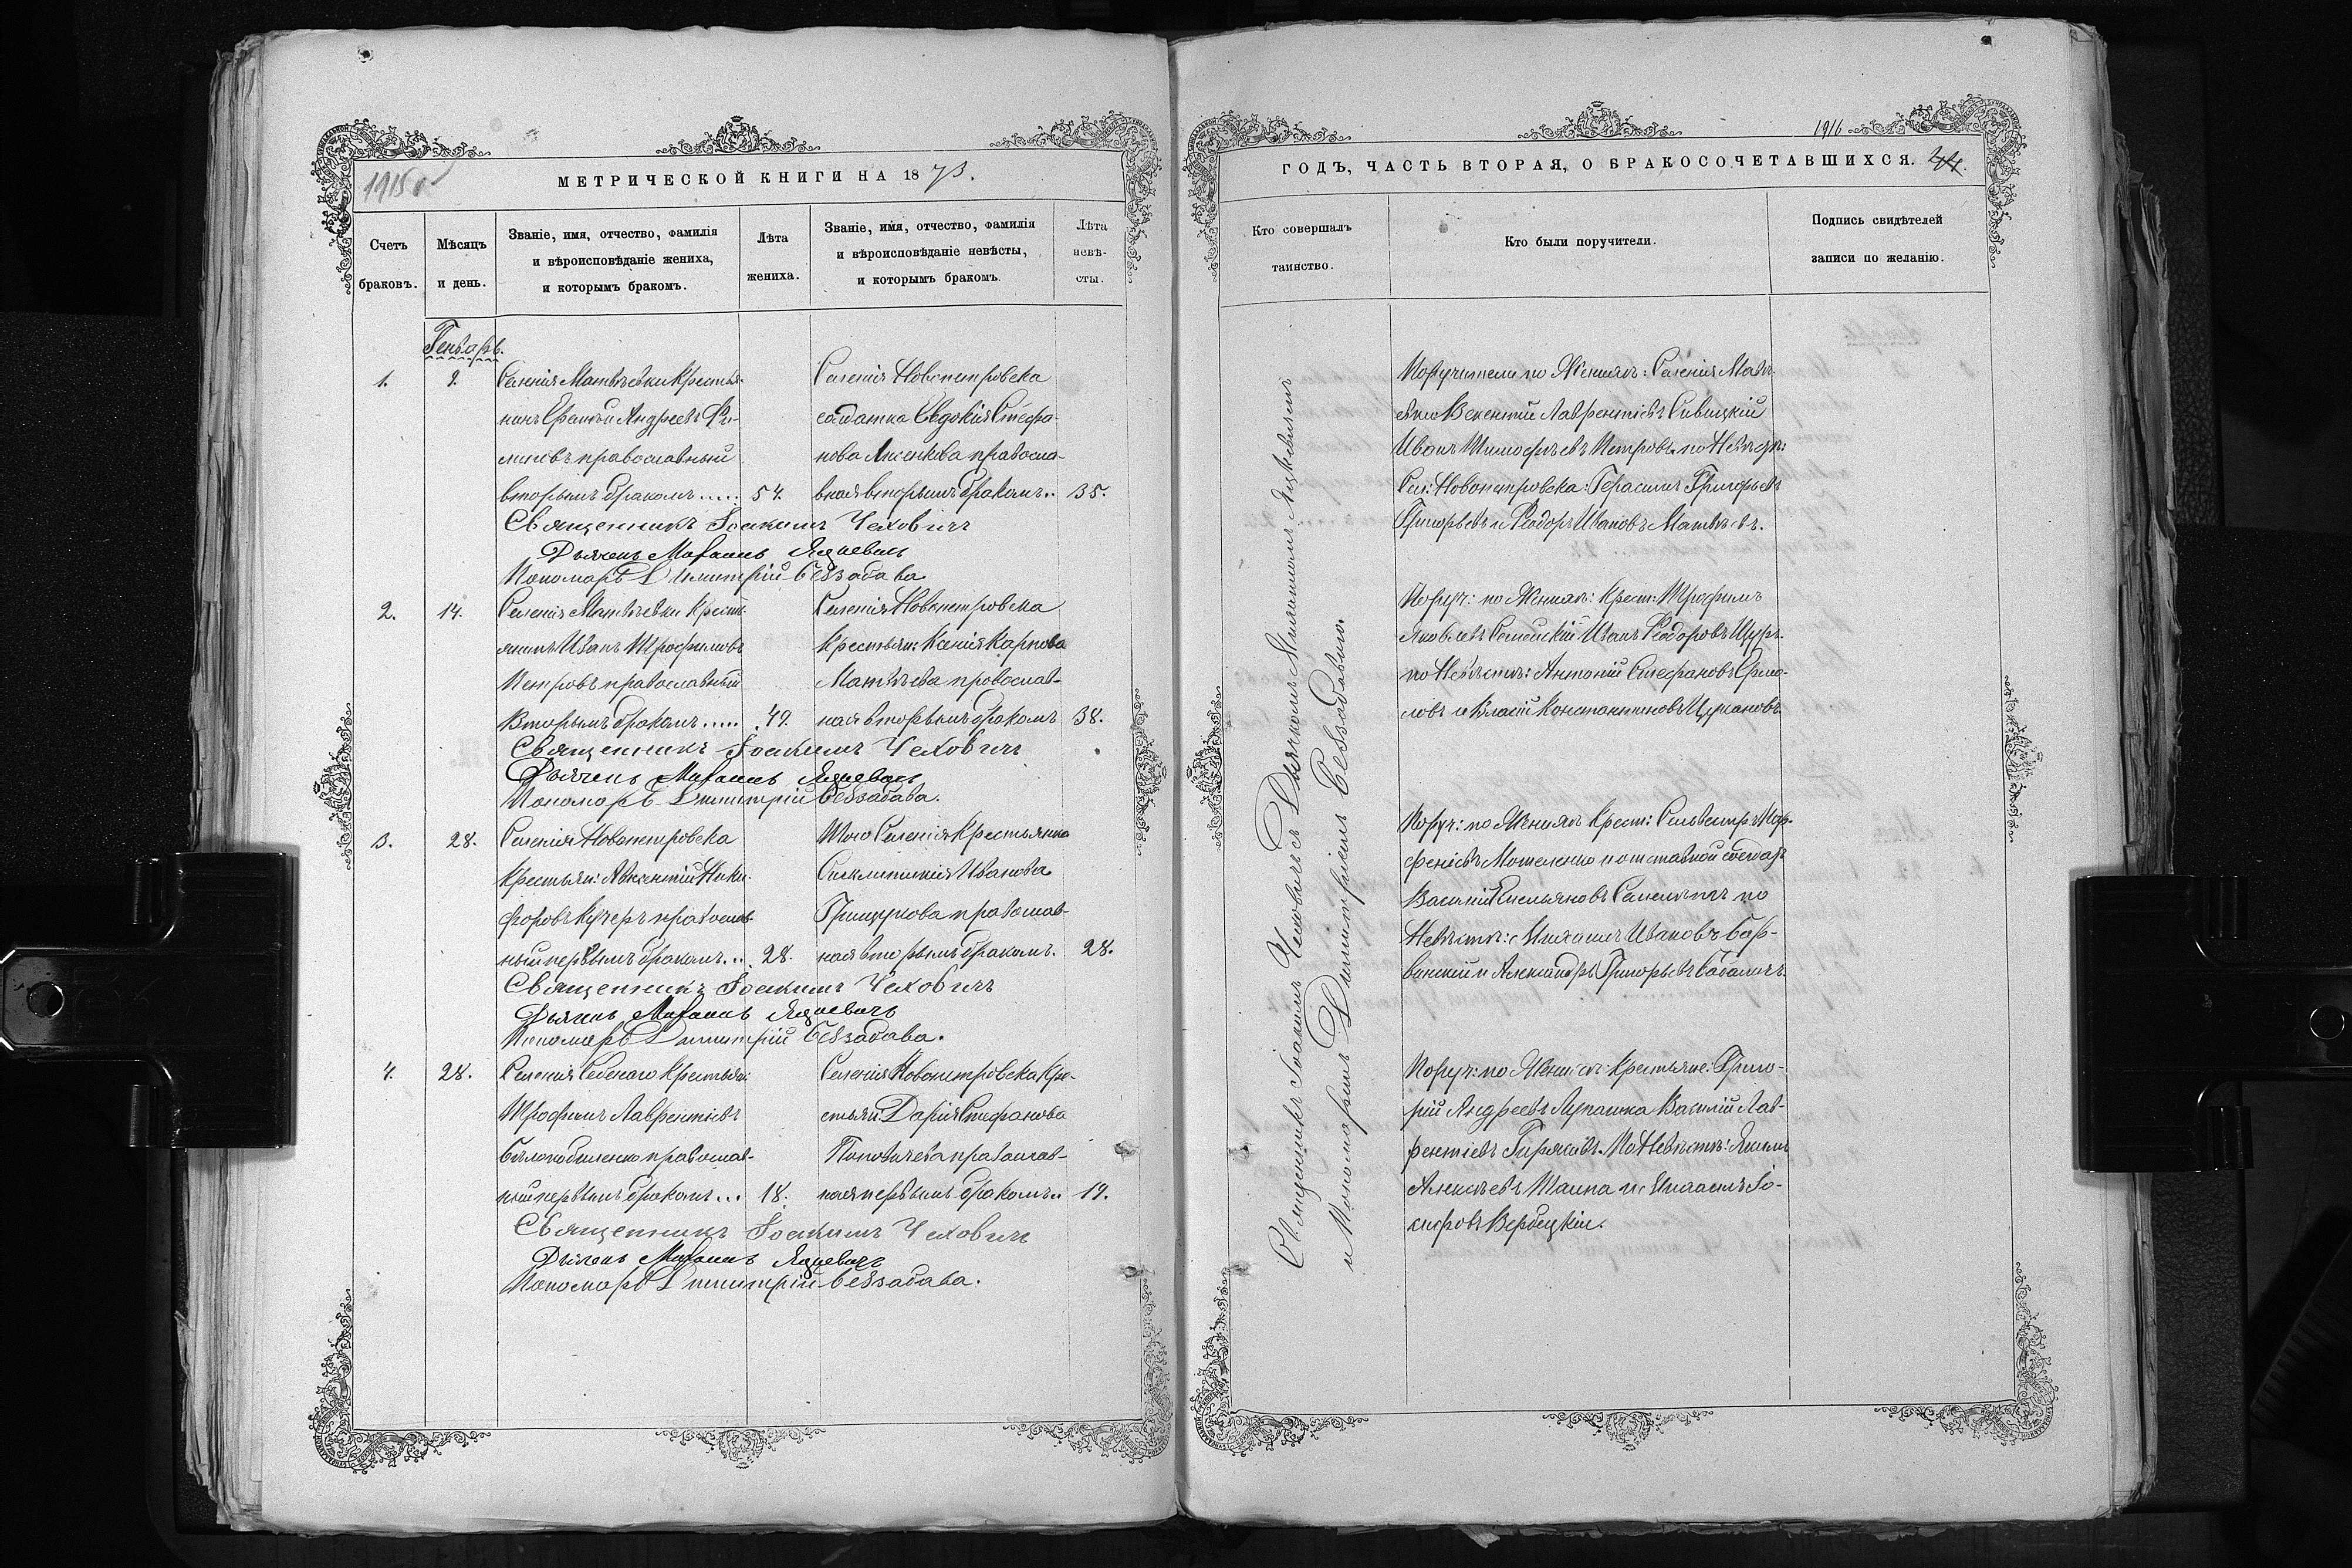 1915 об
МЕТРИЧЕСКОЙ КНИГИ НА 18 73.
Счетъ браковъ.
Мѣсяцъ и день.
Званіе, имя, отчество, фамилія
и вѣроисповѣданіе жениха,
и которымъ бракомъ.
Лѣта жениха.
Званіе, имя, отчество, фамилія
и вѣроисповѣданіе невѣсты,
и которымъ бракомъ.
Лѣта невѣ-
сты.
Генварь.
1.
9.
Селенія Матвѣевки Крестья-
нинъ Ефтимій Андреевъ Фи-
липовъ православный
вторымъ бракомъ..... 54.
Селенія Новопетровска
солдатка Евдокія Стефа-
нова православ-
ная вторымъ бракомъ.. 35.
Священникъ Іоакимъ Чеховичъ
Дьячекъ Михаилъ Яцкевичъ
Пономарь Димитрій Беззабава
2.
14.
Селенія Матвѣевки Кресть-
янинъ Иванъ Трофимовъ
Петровъ православный
Вторымъ бракомъ..... 49.
Селенія Новопетровска
Крестьян: Ксенія Карпова
Матвѣева православ-
ная вторымъ бракомъ 38.
Священникъ Іоакимъ Чеховичъ
Дьячекъ Михаилъ Яцкевичъ
Пономарь Димитрій Беззабава.
3.
28.
Селенія Новопетровска
Крестьян: Авксентій Ники-
форовъ Кучеръ православ-
ный первымъ бракомъ... 28.
Того Селенія Крестьянка
Синклитикія Иванова
православ-
ная вторымъ бракомъ. 28.
Священникъ Іоакимъ Чеховичъ
Дьячекъ Михаилъ Яцкевичъ
Пономарь Димитрій Беззабава.
4.
28.
Селенія Крестьян:
Трофимъ Лаврентіевъ
православ-
ный первымъ бракомъ... 18.
Селенія Новопетровска Кре-
стьян: Дарія Стефанова
Поповичева православ-
ная первымъ бракомъ.. 19.
Священникъ Іоакимъ Чеховичъ
Дьячекъ Михаилъ Яцкевичъ
Пономарь Димитрій Беззабава.
1916
ГОДЪ, ЧАСТЬ ВТОРАЯ, О БРАКОСОЧЕТАВШИХСЯ.
Кто совершалъ
таинство.
Кто были поручители.
Подпись свидѣтелей
записи по желанію.
Священникъ Іоакимъ Чеховичъ съ Дьячкомъ Михаиломъ Яцкевичемъ
и Пономаремъ Димитріемъ Беззабавою.
Поручители по Женихѣ: Селенія Матв-
Викентій Лаврентіевъ Сивицкій
Иванъ Тимофѣевъ Петровъ. по Невѣстѣ:
Сел: Новопетровска: Герасимъ Григорьевъ
Григорьевъ и Ѳеодоръ Ивановъ Матвѣевъ.
Поруч: по Женихѣ: Крест: Трофимъ
Яковлевъ Иванъ Ѳеодоровъ
по Невѣстѣ: Антоній Стефановъ Ермо-
ловъ и Власій Константиновъ
Поруч: по Женихѣ Крест: Сильвестръ Пар-
феніевъ Мотеленко и отставной солдатъ
Василій Емельяновъ по
Невѣстѣ: Михаилъ Ивановъ Бор-
винскій и Александръ Григорьевъ
Поруч: по Женихѣ: Крестьяне: Григо-
рій Андреевъ Лупашка Василій Лав-
рентіевъ По Невѣстѣ: Якимъ
Алексѣевъ и Михаилъ Іо-
сифовъ Вербицкій.